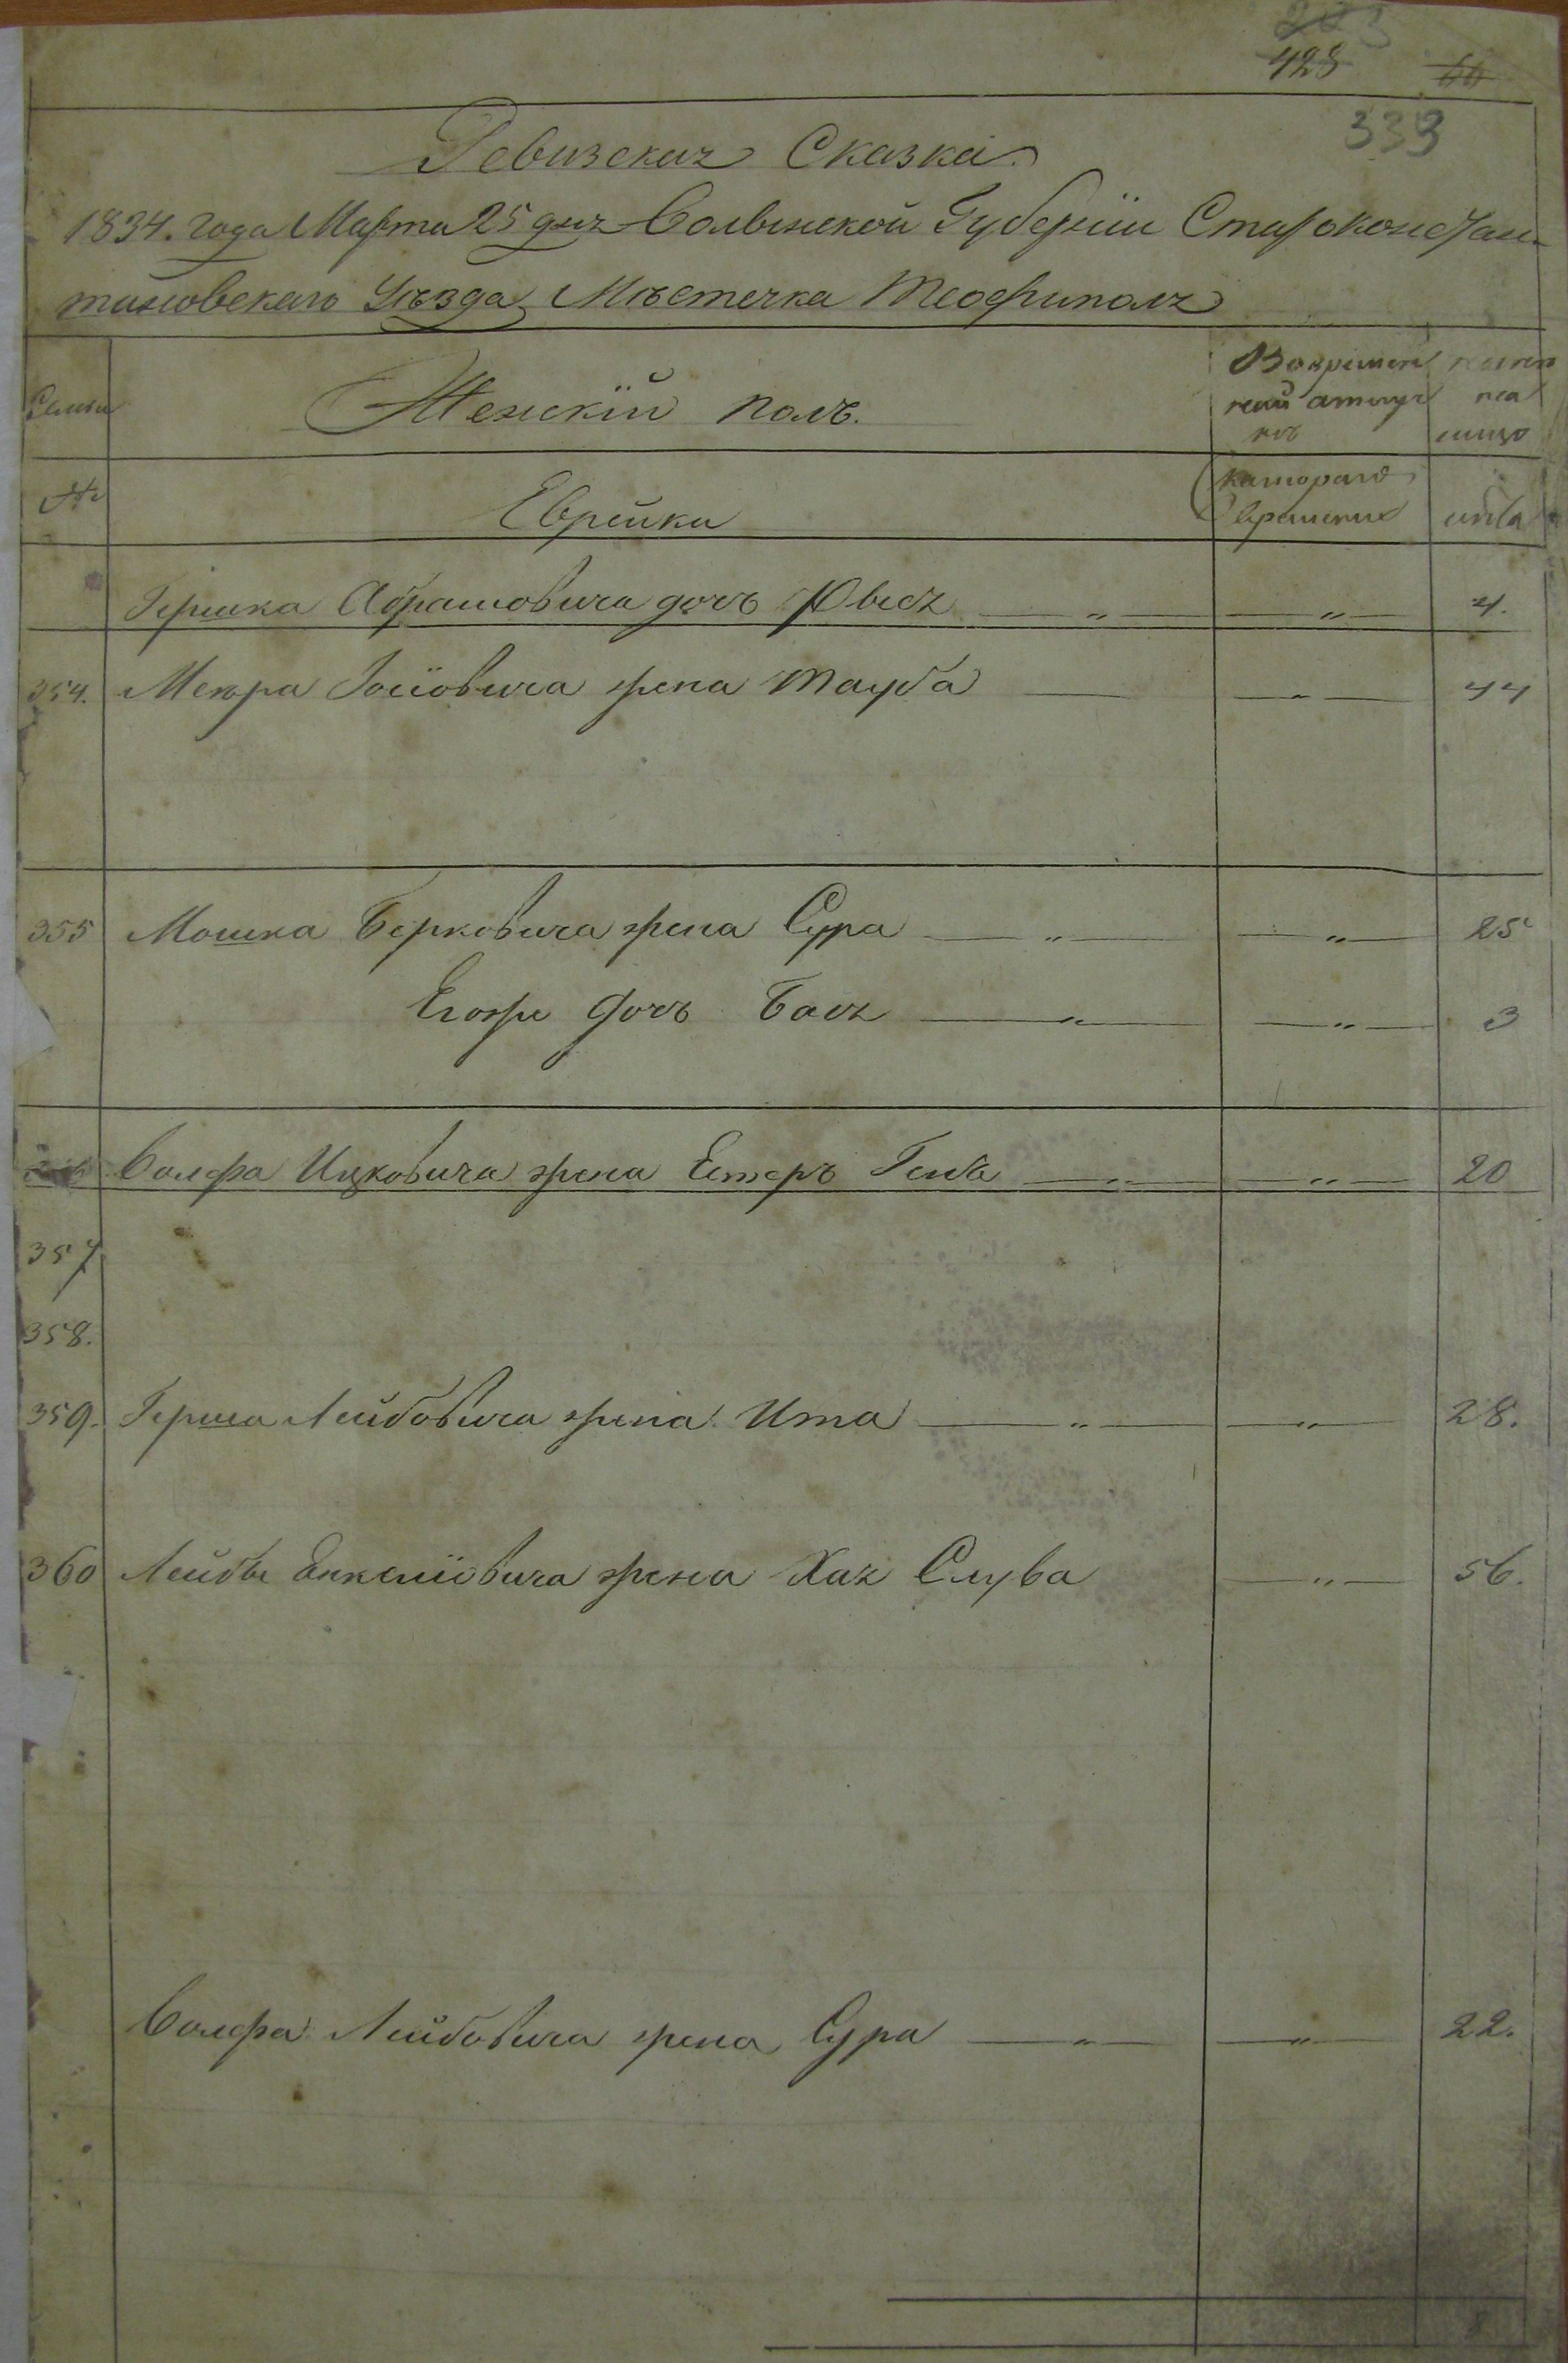 428
66
333
Ревизская Сказка.
1834. года Марта 25 дня Волынской Губернии Староконстан-
тиновскаго Уѣзда Мѣстечка Теофиполя
Семьи
Женскій полъ.
Вовремен
ной отлуч
кѣ
нынѣ
на
лицо
№
Еврейки
котораго
времени
лѣта
Гершка Абрамовича дочь Двися — „ — — „ — 4.
354. Меера Іосіовича жена Тауба — — „ — 44
355 Мошка Берковича жена Сура — „ — — „ — 25
Егоже дочь Бася — „ — — „ — 3
Волфа Ицковича жена Естеръ Геня — „ — — „ — 20
357
358.
359. Герша Лейбовича жена Ита — „ — — „ — 28.
360 Лейбы Енкеліовича жена Хая Слува — „ — 56.
Волфа Лейбовича жена Сура — „ — — „ — 22.
8